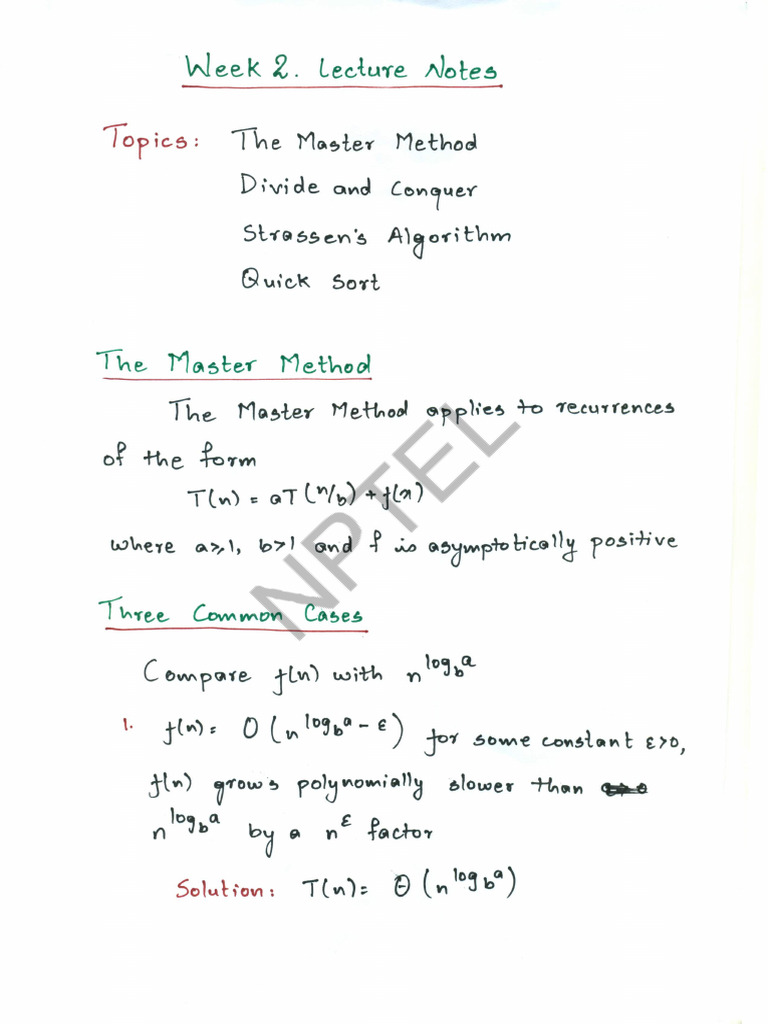 Week 2. Lecture Notes
Topics: The Master Method
Divide and Conquer
Strassen's Algorithm
Quick Sort
The Master Method
The Master Method applies to recurrences
of the form
T(n) = aT(n/b) + f(x)
where a≥1, b>1 and f is asymptotically positive
Three Common Cases
Compare f(n) with n^{log_b a}
1. f(n) = O(n^{log_b a - ε}) for some constant ε>0,
f(n) grows polynomially slower than
n^{log_b a} by a n^ε factor
Solution: T(n) = Θ(n^{log_b a})
NPTEL